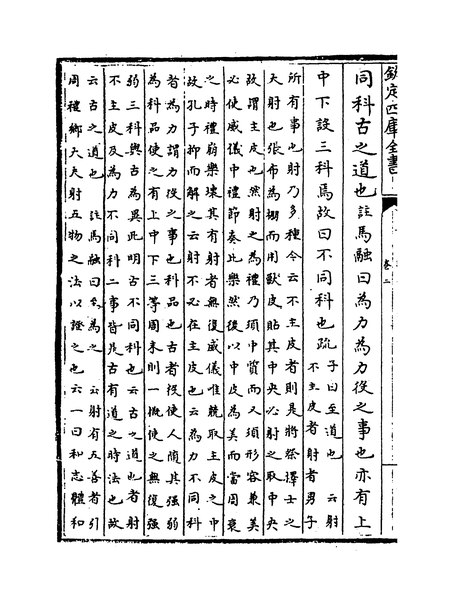 欽定四庫全書
卷二
同科古之道也註馬融曰為力為力役之事也亦有上
中下設三科焉故曰不同科也疏
子曰至道也 云射
不主皮者射者男子
所有事也射乃多種今云不主皮者則是將祭擇士之
大射也張布為棚而用獸皮貼其中央必射之取中央
故謂主皮也然射之為禮乃須中質而又須形容兼美
必使威儀中禮節奏比樂然後以中皮為美而當周衰
之時禮崩樂壞其有射者無復威儀唯競取主皮之中
故孔子抑而解之云射不必在主皮也云為力不同科
者為力謂力役之事也科品也古者役使人隨其强弱
為科品使之有上中下三等周末則一概使之無復强
弱三科與古為異此明古不同科也云古之道也者射
不主皮及為力不同科二事皆是古有道之時法也故
云古之道也 註馬融曰至為之 云射有五善者引
周禮鄉大夫射五物之法以證之也云一曰和志體和